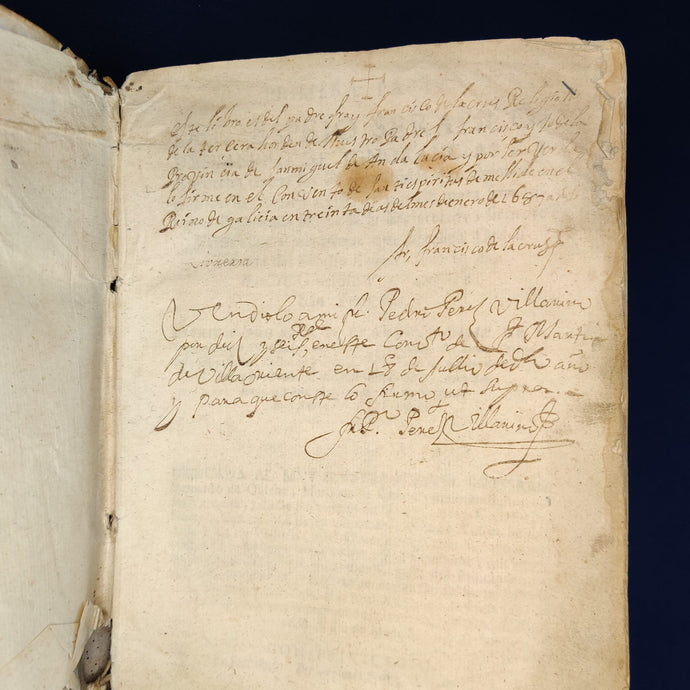 este libro es del padre fray francisco de la crus Religioso
de la tercera horden de Nuestro Padre S. francisco y de la
provincia de san miguel de Andalucia y por ser
lo firme en el Convento de santispiritus de mellid en el
Reino de galicia en treinta dias del mes de enero de 1687
fr, francisco de la cruz
Vendiolo a mi fr. Pedro Perez Villarino
por diez y seis Rs en este Conto de S Martin
de Villa oriente en 18 de Jullio de dho año
y para que conste lo firmo ut supra
fr Po Perez Villarino